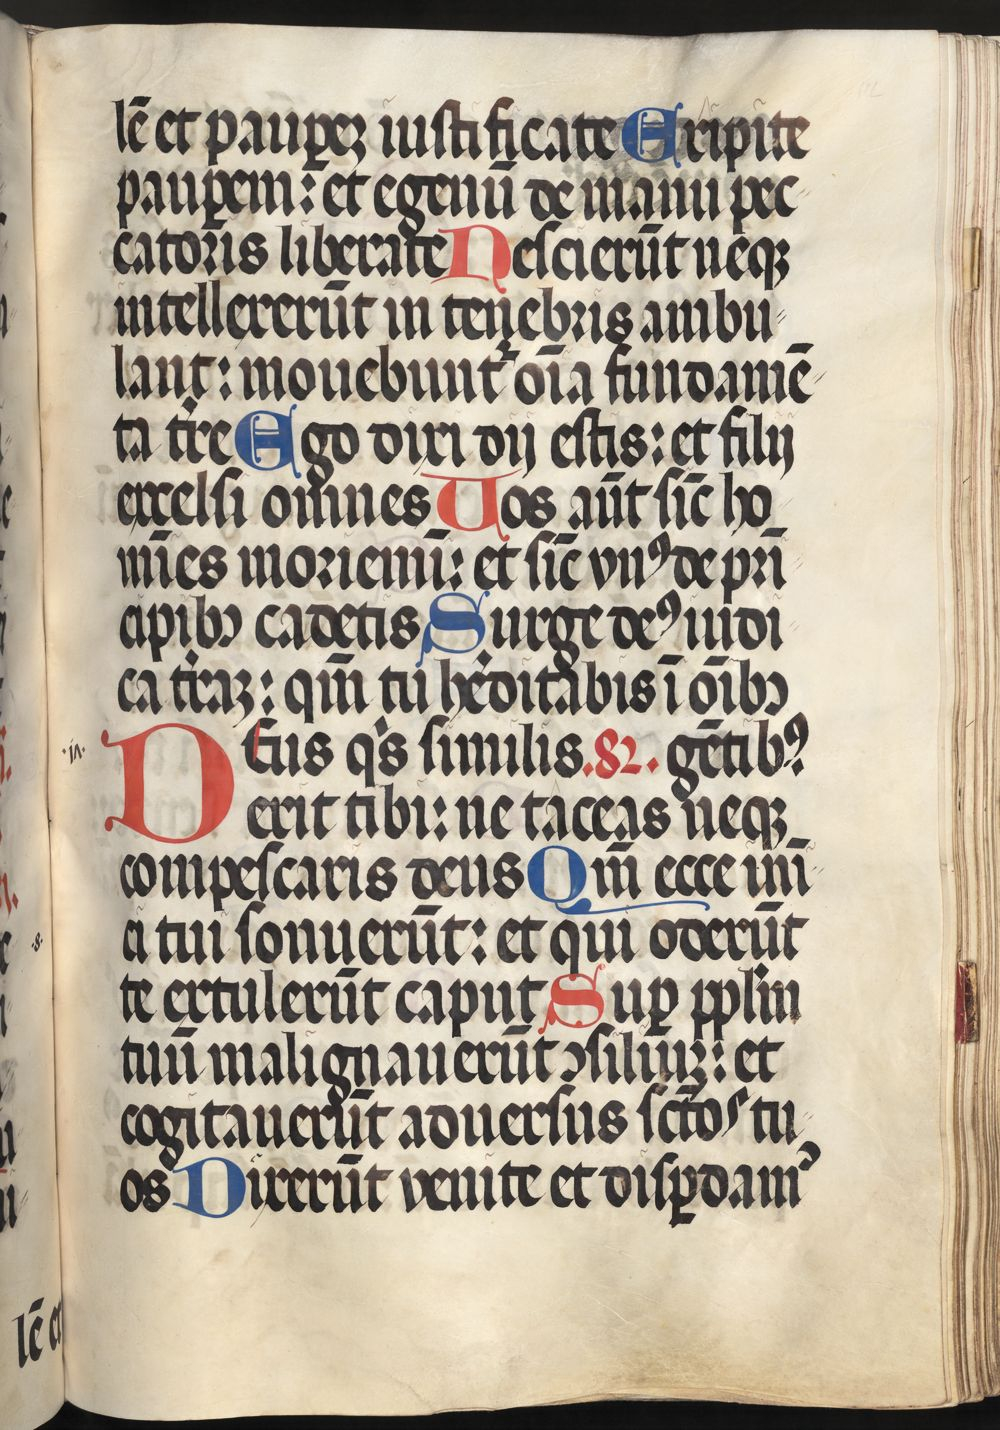 lē et paupeꝝ iustificate Eripite
pauꝑem: et egenū de manu pec
catoris liberate Nescierūt neqꝫ
intellexerūt in tenebris ambu
lant: mouebunt᷑ oīa fundamē
ta tr̄re Ego dixi dij estis: et filij
excelsi omnes Uos aūt sic̄ ho
mīes moriemī: et sic̄ vnꝰ de pri
cipibꝫ cadetis Surge deꝰ iudi
ca tr̄aꝫ: qm̄ tu he᷑ditabis ī oībꝫ
Deus qͥs similis .82. gētibꝰ
erit tibi: ne taceas neqꝫ
compescaris deus Qm̄ ecce inī
ci tui sonuerūt: et qui oderūt
te extulerūt caput Suꝑ pplm̄
tuū malignauerūt ꝯsiliūꝫ: et
cogitauerūt aduersus sctōs tu
os Dixerūt venite et disꝑdamꝰ
lē et